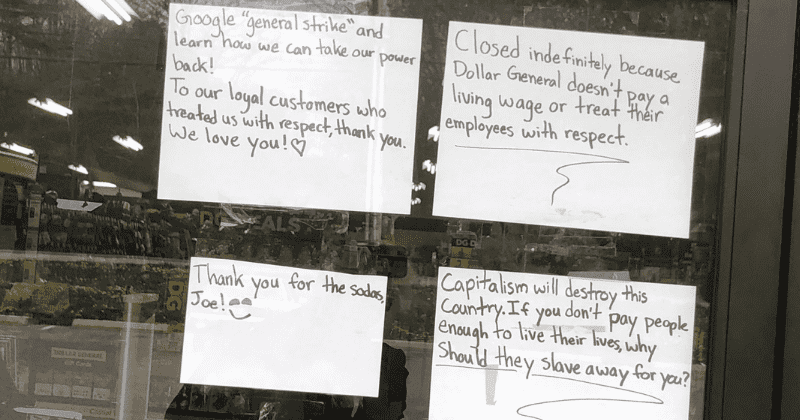 Google "general strike" and
learn how we can take our power
back!
To our loyal customers who
treated us with respect, thank you.
We love you!♡
Closed indefinitely because
Dollar General doesn't pay a
living wage or treat their
employees with respect.
Thank you for the sodas,
Joe!
Capitalism will destroy this
Country. If you don't pay people
enough to live their lives, why
Should they slave away for you?
DEALS
DG
DG
DOLLAR GENERAL